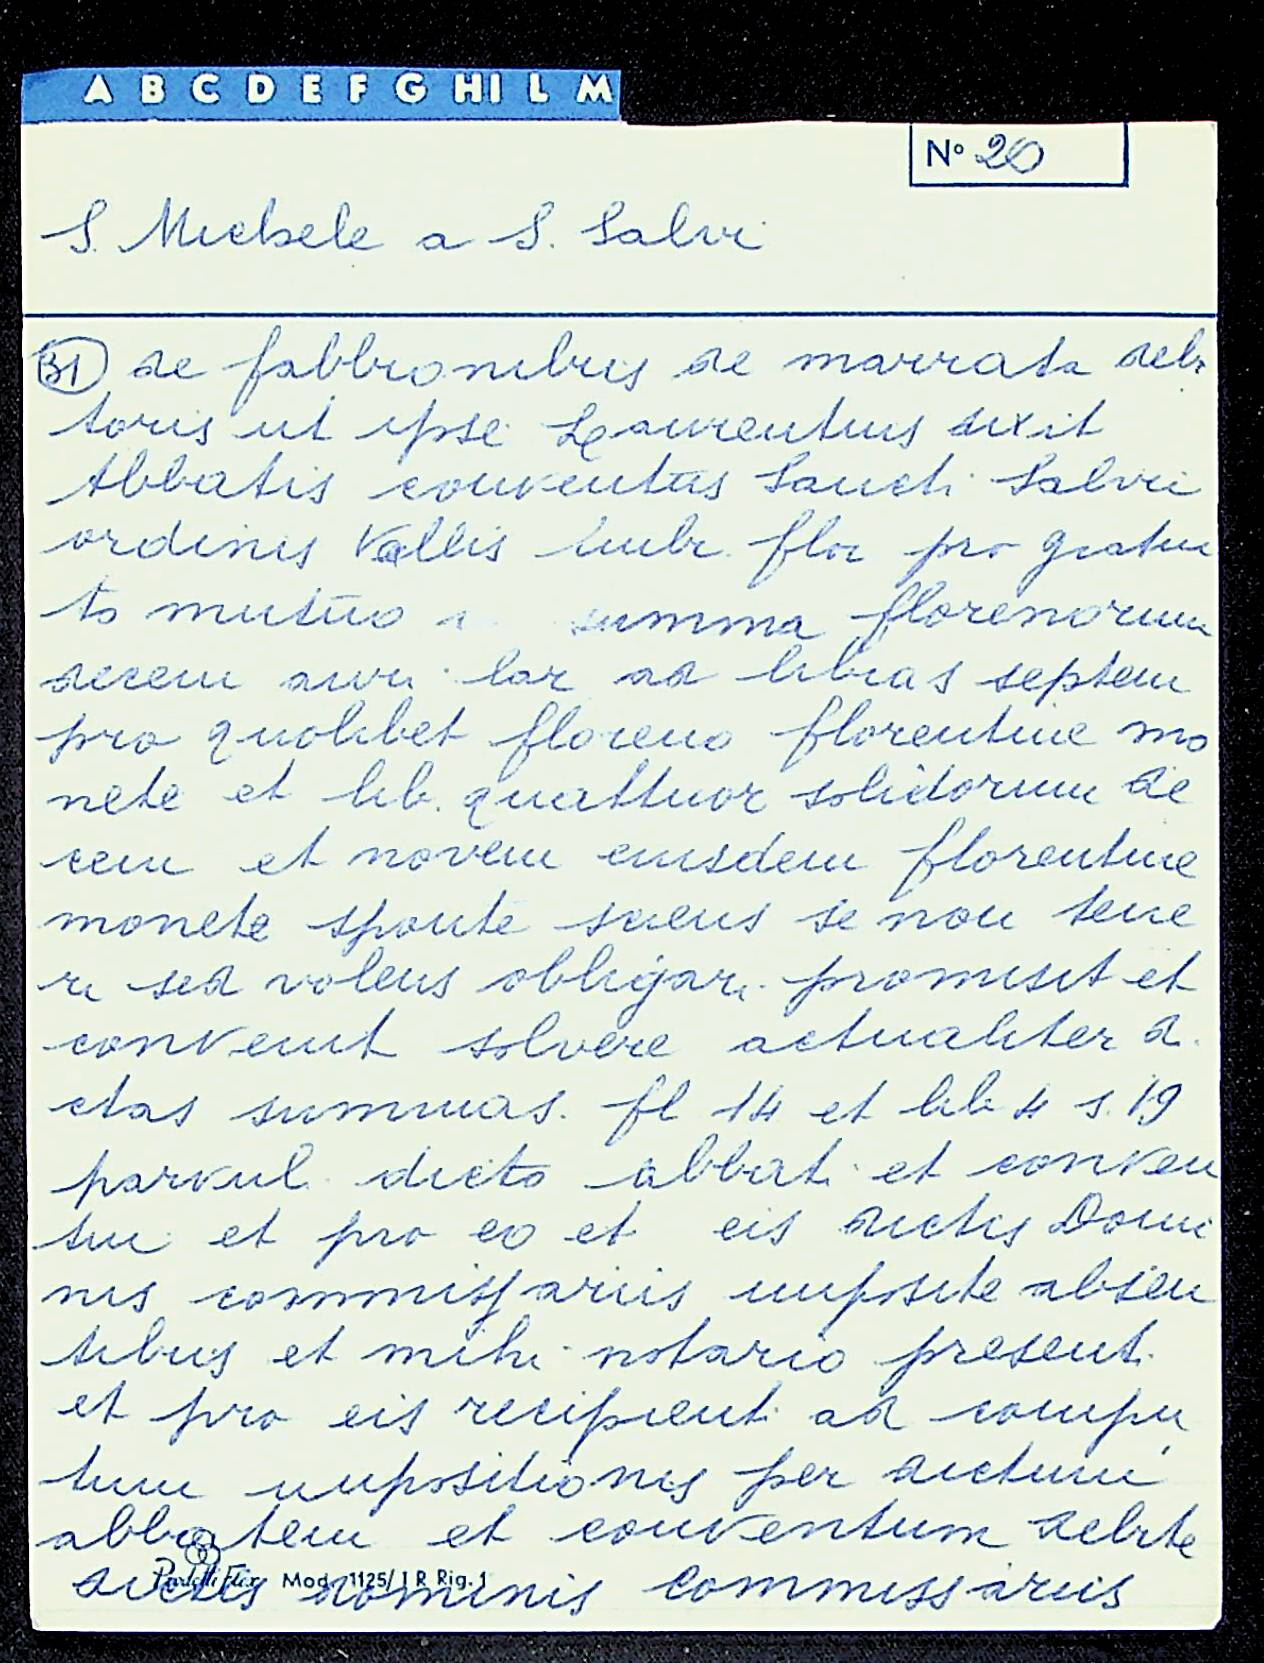 A B C D E F G HI L M
N° 20
S. Michele a S. Salvi
31 de fabbronibus de marrata debi
toris ut ipse Laurentius dixit
Abbatis conventus Sancti Salvi
ordinis Vallis Umbr. flor pro gratui
to mutuo summa florenorum
decem auri lar ad libras septem
pro quolibet floreno florentine mo
nete et lib. quattuor solidorum de
cem et novem eiusdem florentine
monete sponte sciens se non tene
ri sed volens obligari promisit et
convenit solvere actualiter di
ctas summas. fl 14 et lib 4 s. 19
parvul. dicto abbati et conven
tui et pro eo et eis dictis Domi
nis commissariis imposite absen
tibus et mihi notario presenti
et pro eis recipienti ad compu
tum impositionis per dictum
abbatem et conventum debite
dictis dominis commissariis
Mod. 1125/1 R Rig. 1